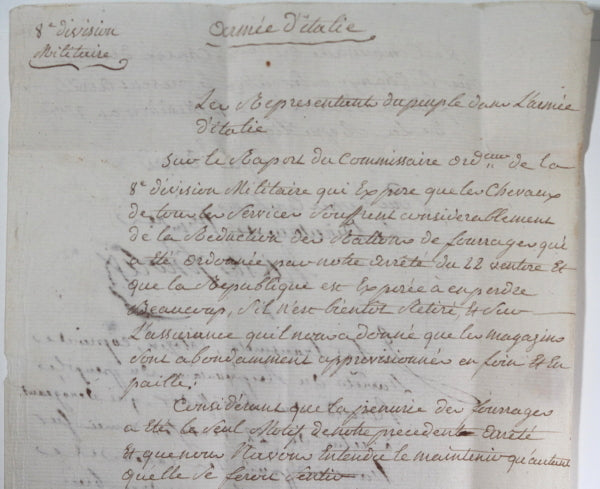 8e division
Militaire
Armée d'italie
Les Representant du peuple dans L'armée
d'italie
Sur le Raport du Commissaire Ord.eur de la
8e division Militaire qui Expose que les Chevaux
de tous les Services Souffrent considerablement
de la Reduction des Rations de fourrages qui
a Eté ordonnée par notre arreté du 22 ventose Et
que la Republique est Exposée a en perdre
Beaucoup, S'il n'est bientot Retiré, Et Sur
L'assurance quil nous a donné que les magazins
Sont abondamment approvisionnés en foin Et En
paille;
Considérant que la penurie des fourrages
a Eté le Seul Motif de notre precedent arreté
Et que nous N'avons Entendu le maintenir qu'autant
quelle Se feroit Sentir